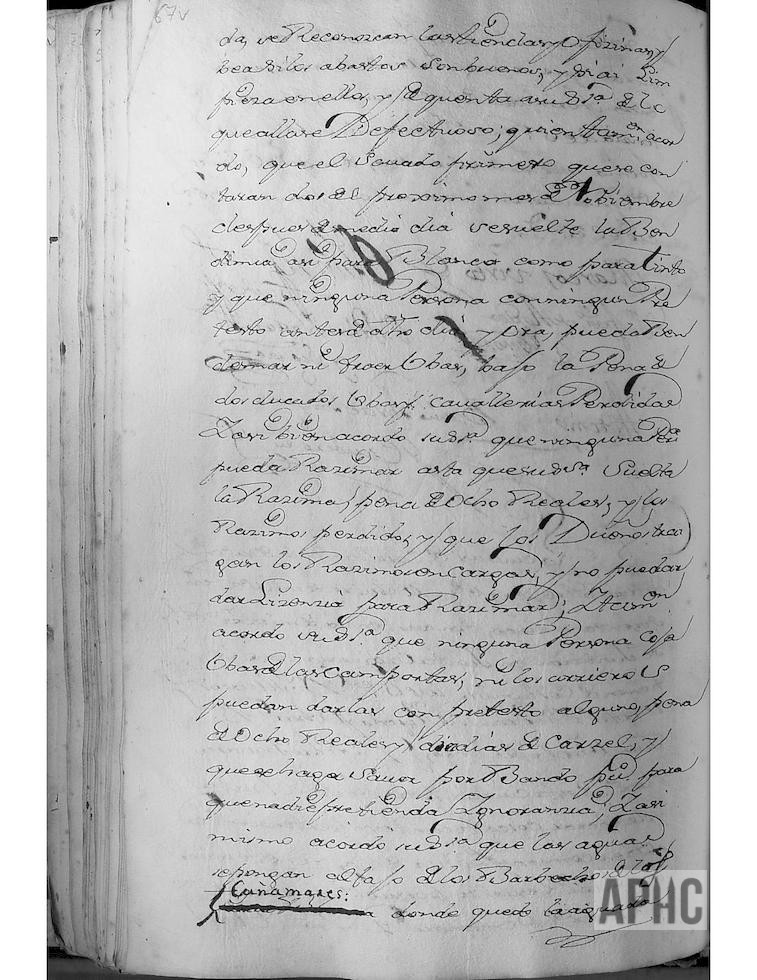 67v
da, se Reconozcan las tiendas, y Ofizinas, y
bea si los abastos son buenos, y si ai Lim
pieza en ellos, y se de quenta a su Sª. de lo
que allare Defectuoso; y quientam.on acor
do, que el Savado primero que se con
taran dos del proximo mes de Nobiembre
despues de medio dia se suelte la Ben
dimia asi para Blanco como para tinto
y que ninguna Persona con ningun Pre
testo antes de dho dia y Ora, pueda Ben
demar ni traer Ubas, bajo la Pena de
dos ducados Ubas y cavallerias Perdidas
Y asi bien acordo su Sª. que ninguna Perª
pueda Razimar asta que su Sª. Suelte
la Razima, pena de Ocho Reales, y los
Razimos perdidos, y que los Dueños trai
gan los Razimos en Cargas, y no puedan
dar Lizenzia para Razimar; Ytam.on
acordo su Sª. que ninguna Persona Coja
Ubas de las Comportas, ni los arrieros
puedan darlas con pretesto alguno, pena
de Ocho Reales y dos dias de Carzel, y
que se haga Saver por Bando pu.co para
que nadie pretenda Ygnoranzia; Y asi
mismo acordo su Sª. que las aguas
se pongan al taso de los Barbechos de los
Cañamares:
a donde quedo la aguada
APHC